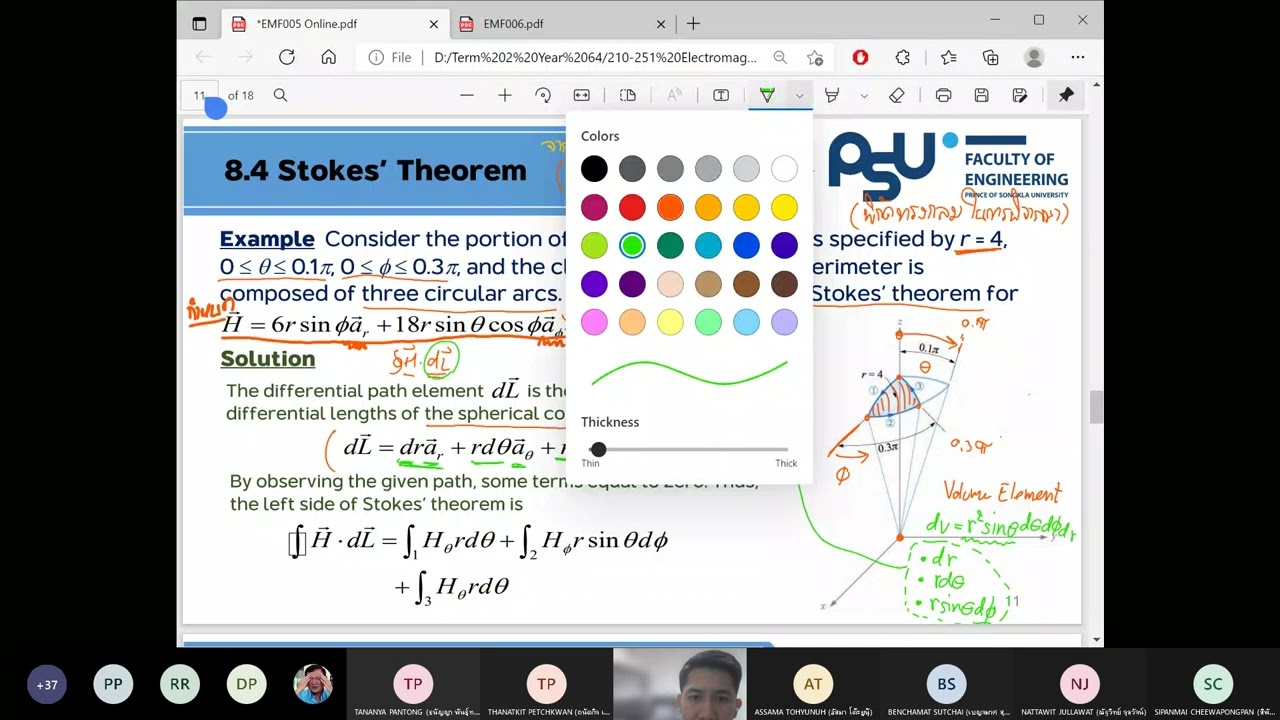 *EMF005 Online.pdf
EMF006.pdf
File
D:/Term%202%20Year%2064/210-251%20Electromag...
11 of 18
8.4 Stokes' Theorem
PSU
FACULTY OF
ENGINEERING
PRINCE OF SONGKLA UNIVERSITY
Colors
Example Consider the portion of
s specified by r = 4,
0 ≤ θ ≤ 0.1π, 0 ≤ ϕ ≤ 0.3π, and the cl
erimeter is
composed of three circular arcs.
Stokes' theorem for
H = 6r sin ϕa_r + 18r sin θ cos ϕa_ϕ
Solution
∮H · dL
The differential path element dL is the
differential lengths of the spherical co
dL = dra_r + rdθa_θ + r
Thickness
Thin
Thick
By observing the given path, some terms equal to zero. Thus,
the left side of Stokes' theorem is
∮H · dL = ∫₁ H_θ rdθ + ∫₂ H_ϕ r sin θdϕ
+ ∫₃ H_θ rdθ
z
0.1π
0.1π
θ
r = 4
①
③
②
0.3π
0.3π
ϕ
Volume Element
dv = r² sinθ dθdϕdr
• dr
• rdθ
• rsinθdϕ
x
11
+37
PP
RR
DP
TP
TP
AT
BS
NJ
SC
TANANYA PANTONG
THANATKIT PETCHKWAN
ASSAMA TOHYUNUH
BENCHAMAT SUTCHAI
NATTAWIT JULLAWAT
SIPANMAI CHEEWAPONGPAN